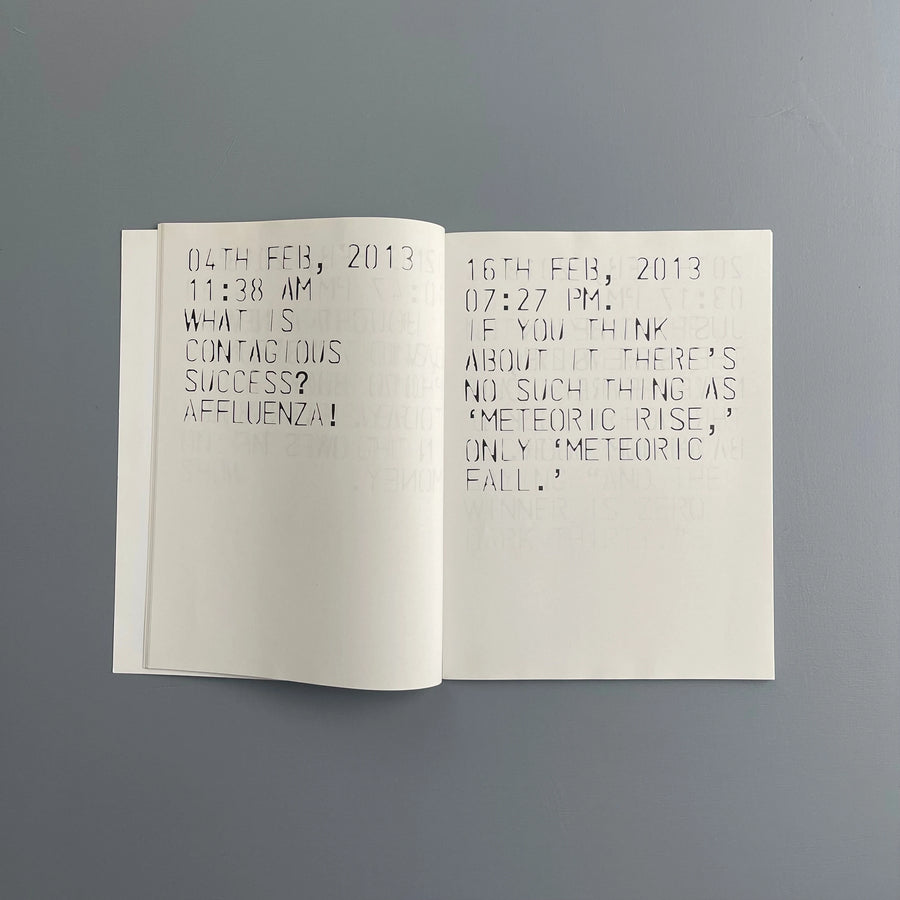 04TH FEB, 2013
11:38 AM
WHAT IS
CONTAGIOUS
SUCCESS?
AFFLUENZA!
16TH FEB, 2013
07:27 PM.
IF YOU THINK
ABOUT IT THERE'S
NO SUCH THING AS
‘METEORIC RISE,’
ONLY ‘METEORIC
FALL.’
"AND THE
WINNER IS ZERO
DARK THIRTY."